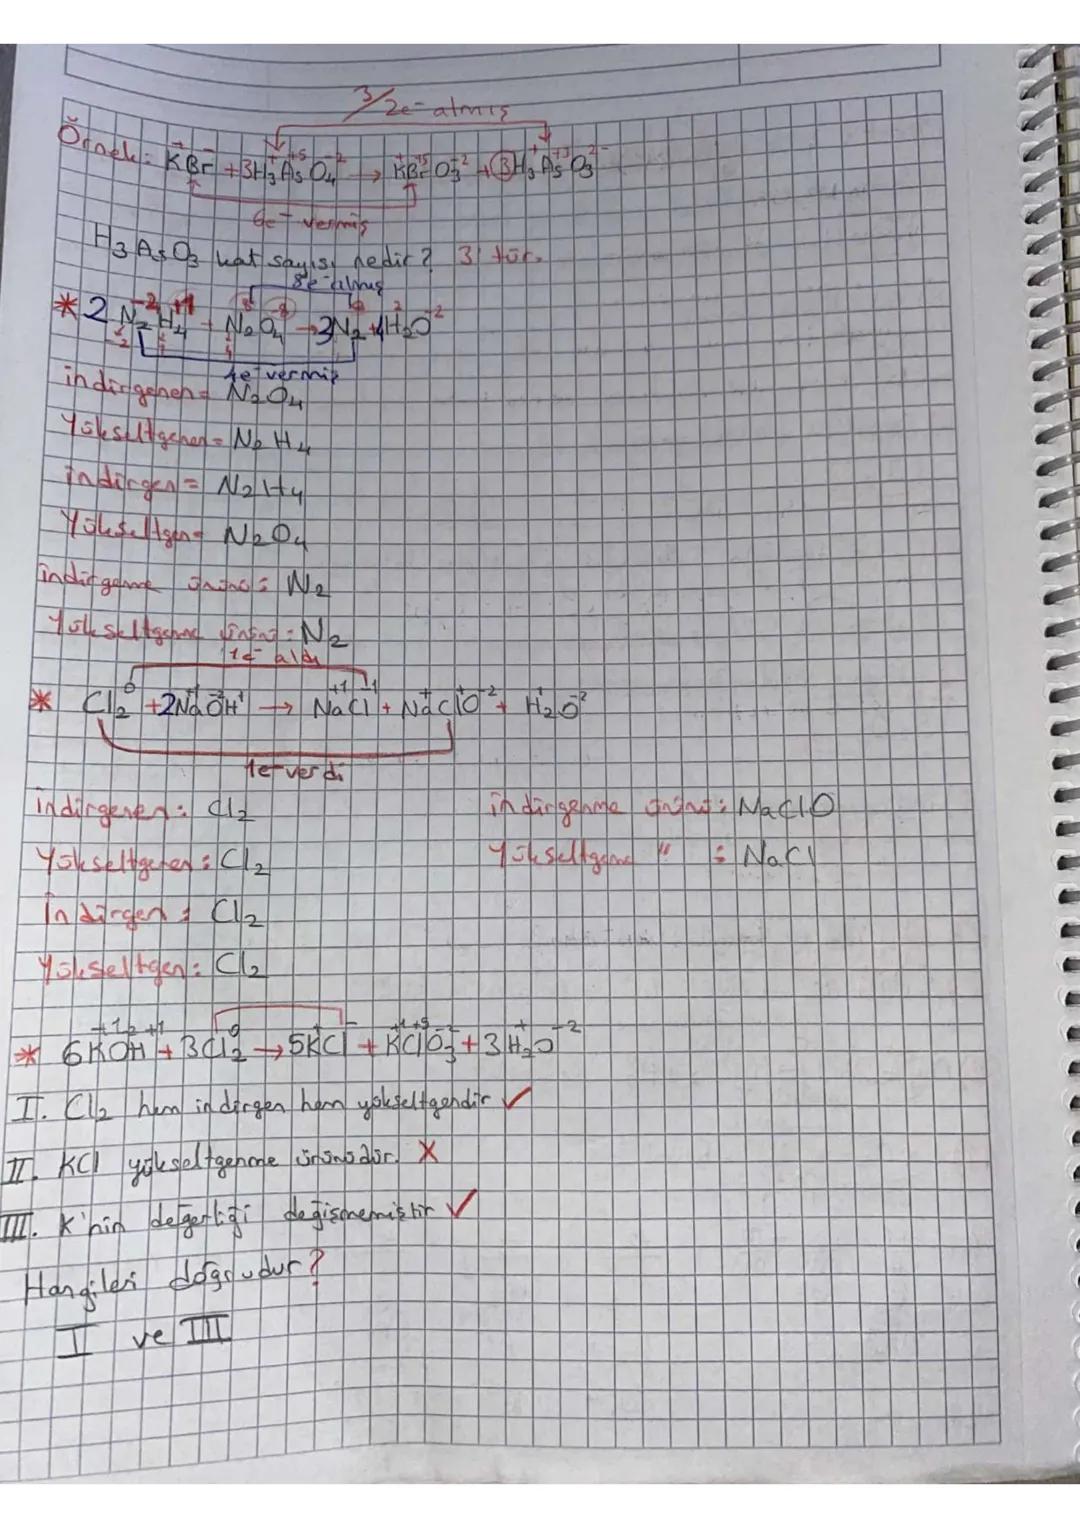 3/2e⁻ almış
Örnek: KBr + 3H₃AsO₄ → KBrO₃ + 3H₃AsO₃
6e⁻ vermiş
H₃AsO₃ kat sayısı nedir? 3'tür.
8e⁻ almış
* 2N₂H₄ + N₂O₄ → 3N₂ + 4H₂O
4e⁻ vermiş
indirgenen = N₂O₄
Yükseltgenen = N₂H₄
indirgen = N₂H₄
Yükseltgen = N₂O₄
indirgenme ürünü: N₂
Yükseltgenme ürünü: N₂
1e⁻ aldı
* Cl₂ + 2NaOH → NaCl + NaClO + H₂O
1e⁻ verdi
indirgenen: Cl₂ indirgenme ürünü: NaClO
Yükseltgenen: Cl₂ Yükseltgenme " : NaCl
indirgen: Cl₂
Yükseltgen: Cl₂
* 6KOH + 3Cl₂ → 5KCl + KClO₃ + 3H₂O
I. Cl₂ hem indirgen hem yükseltgendir ✓
II. KCl yükseltgenme ürünüdür. X
III. K'nin değerliği değişmemiştir ✓
Hangileri doğrudur?
I ve III